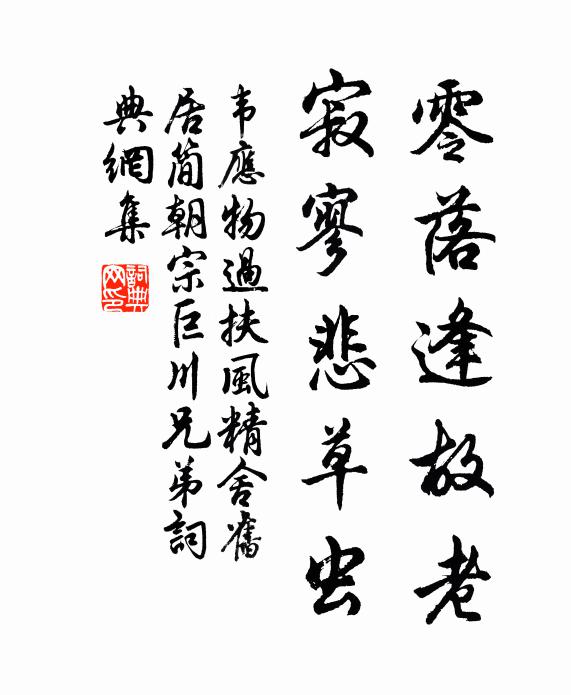 零落逢故老
寂寥悲草虫
韦應物過扶風精舍舊
居简朝宗巨川兄弟詞
典網集
詞典
网印